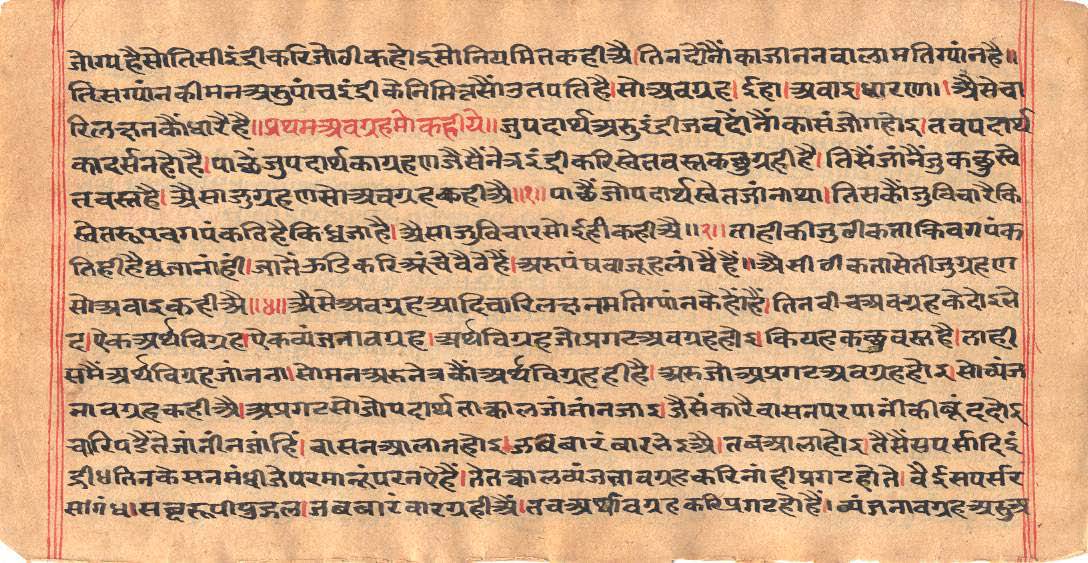 जोग्य है सो तिसी इंद्री करि जोग्री कहो इसो नियमित कहीअै। तिन दोनौं का जाननवाला मतिग्पांन है॥
तिस ग्पांन की मन अरु पांच इंद्री के निमित्तसौं उतपति है। सो अवग्रह। ईहा। अवाइ। धारणा। अैसे चा
रि लछन कौं धारै है॥ प्रथम अवग्रह मो कहीये॥ जु पदार्थ अरु इंद्री जब दौंनौं का संजोग होइ। तब पदार्थ
का दर्सन होहै। पाछें जु पदार्थ का ग्रहण जैसैं नेत्र इंद्री करि स्वेत वस्त कछु ग्रही है। तिसैं जांनैं जु कछु स्वे
त वस्त है। अैसा जु ग्रहण सो अवग्रह कहीअै॥१॥ पाछैं जो पदार्थ स्वेत जांना था। तिसकौं जु विचारै कि
स्वेत रूप बगपंकति है कि ध्वजा है। अैसा जु विचार सो ईहा कहीअै॥२॥ ताही की जु ठीकता कि बगपंक
तिही है ध्वजा नांहीं। जातैं ऊडि करि ऊंचै बैठै हैं। अरु पंष बाजू हलांवै हैं॥ अैसी ठीकता सेती जु ग्रहण
सो अवाइ कहीअै॥४॥ अैसे अवग्रह आदि चारि लछन मतिग्पांन के हौं हैं। तिन बीच अवग्रह के दोइ भे
द। ऐक अर्थविग्रह। ऐक व्यंजनावग्रह। अर्थविग्रह जो प्रगट अवग्रह होइ। कि यह कछु वस्त है। ताही
समैं अर्थविग्रह जांनना। सो मन अरु नेत्र कौं अर्थविग्रह ही है। अरु जो अप्रगट अवग्रह होइ। सो व्यंज
नावग्रह कहीअै। अप्रगट सो जो पदार्थ तत्काल जांनां न जाइ। जैसैं कोरै वासन पर पानी की बूंद दोइ
चारि पडैं ते जांनी न जांहिं। वासन आला न होइ। जब बारंबार सेइअै। तब आला होइ। तैसैं सपर्सादि इं
द्री धति न के सनमंधी जे परमानूं परनऐ हैं। ते तत्काल व्यंजनावग्रह करि नांही प्रगट होते। वैई सपर्स र
स गंध। सब्द रूपी पुद्गल। जब बारंवार ग्रहीअैं। तब अर्थावग्रह करि प्रगट होहैं। व्यंजनावग्रह अरु अ